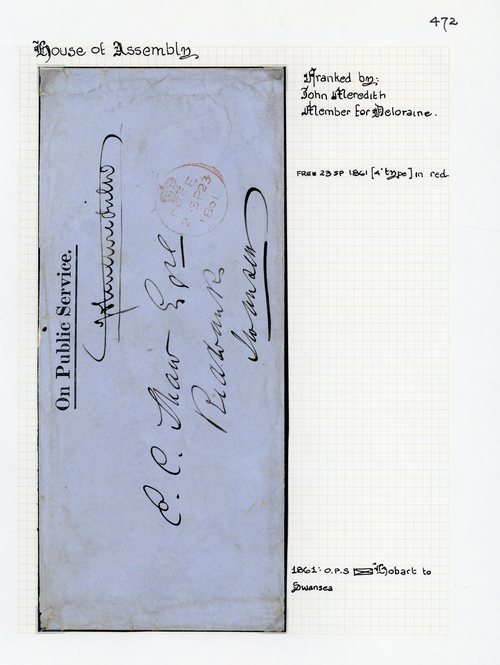 472
House of Assembly
Franked by:
John Meredith
Member for Deloraine.
FREE 23 SP 1861 [4" type] in red.
On Public Service.
FREE
2 SP 23
1861
C. C. Shaw Esqre
Redbanks
Swansea
1861: O.P.S Hobart to
Swansea